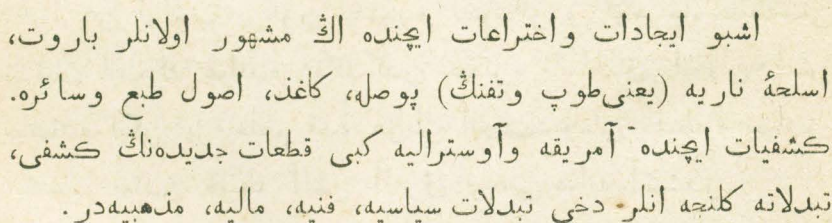 اشبو ايجادات و اختراعات ايچنده اڭ مشهور اولانلر باروت،
اسلحهٔ ناريه (يعنى طوپ و تفنڭ) پوصله، كاغذ، اصول طبع و سائره.
كشفيات ايچنده آمريقه و آوستراليه كبى قطعات جديده‌نڭ كشفى،
تبدلاته كلنجه انلر دخى تبدلات سياسيه، فنيه، ماليه، مذهبيه‌در.